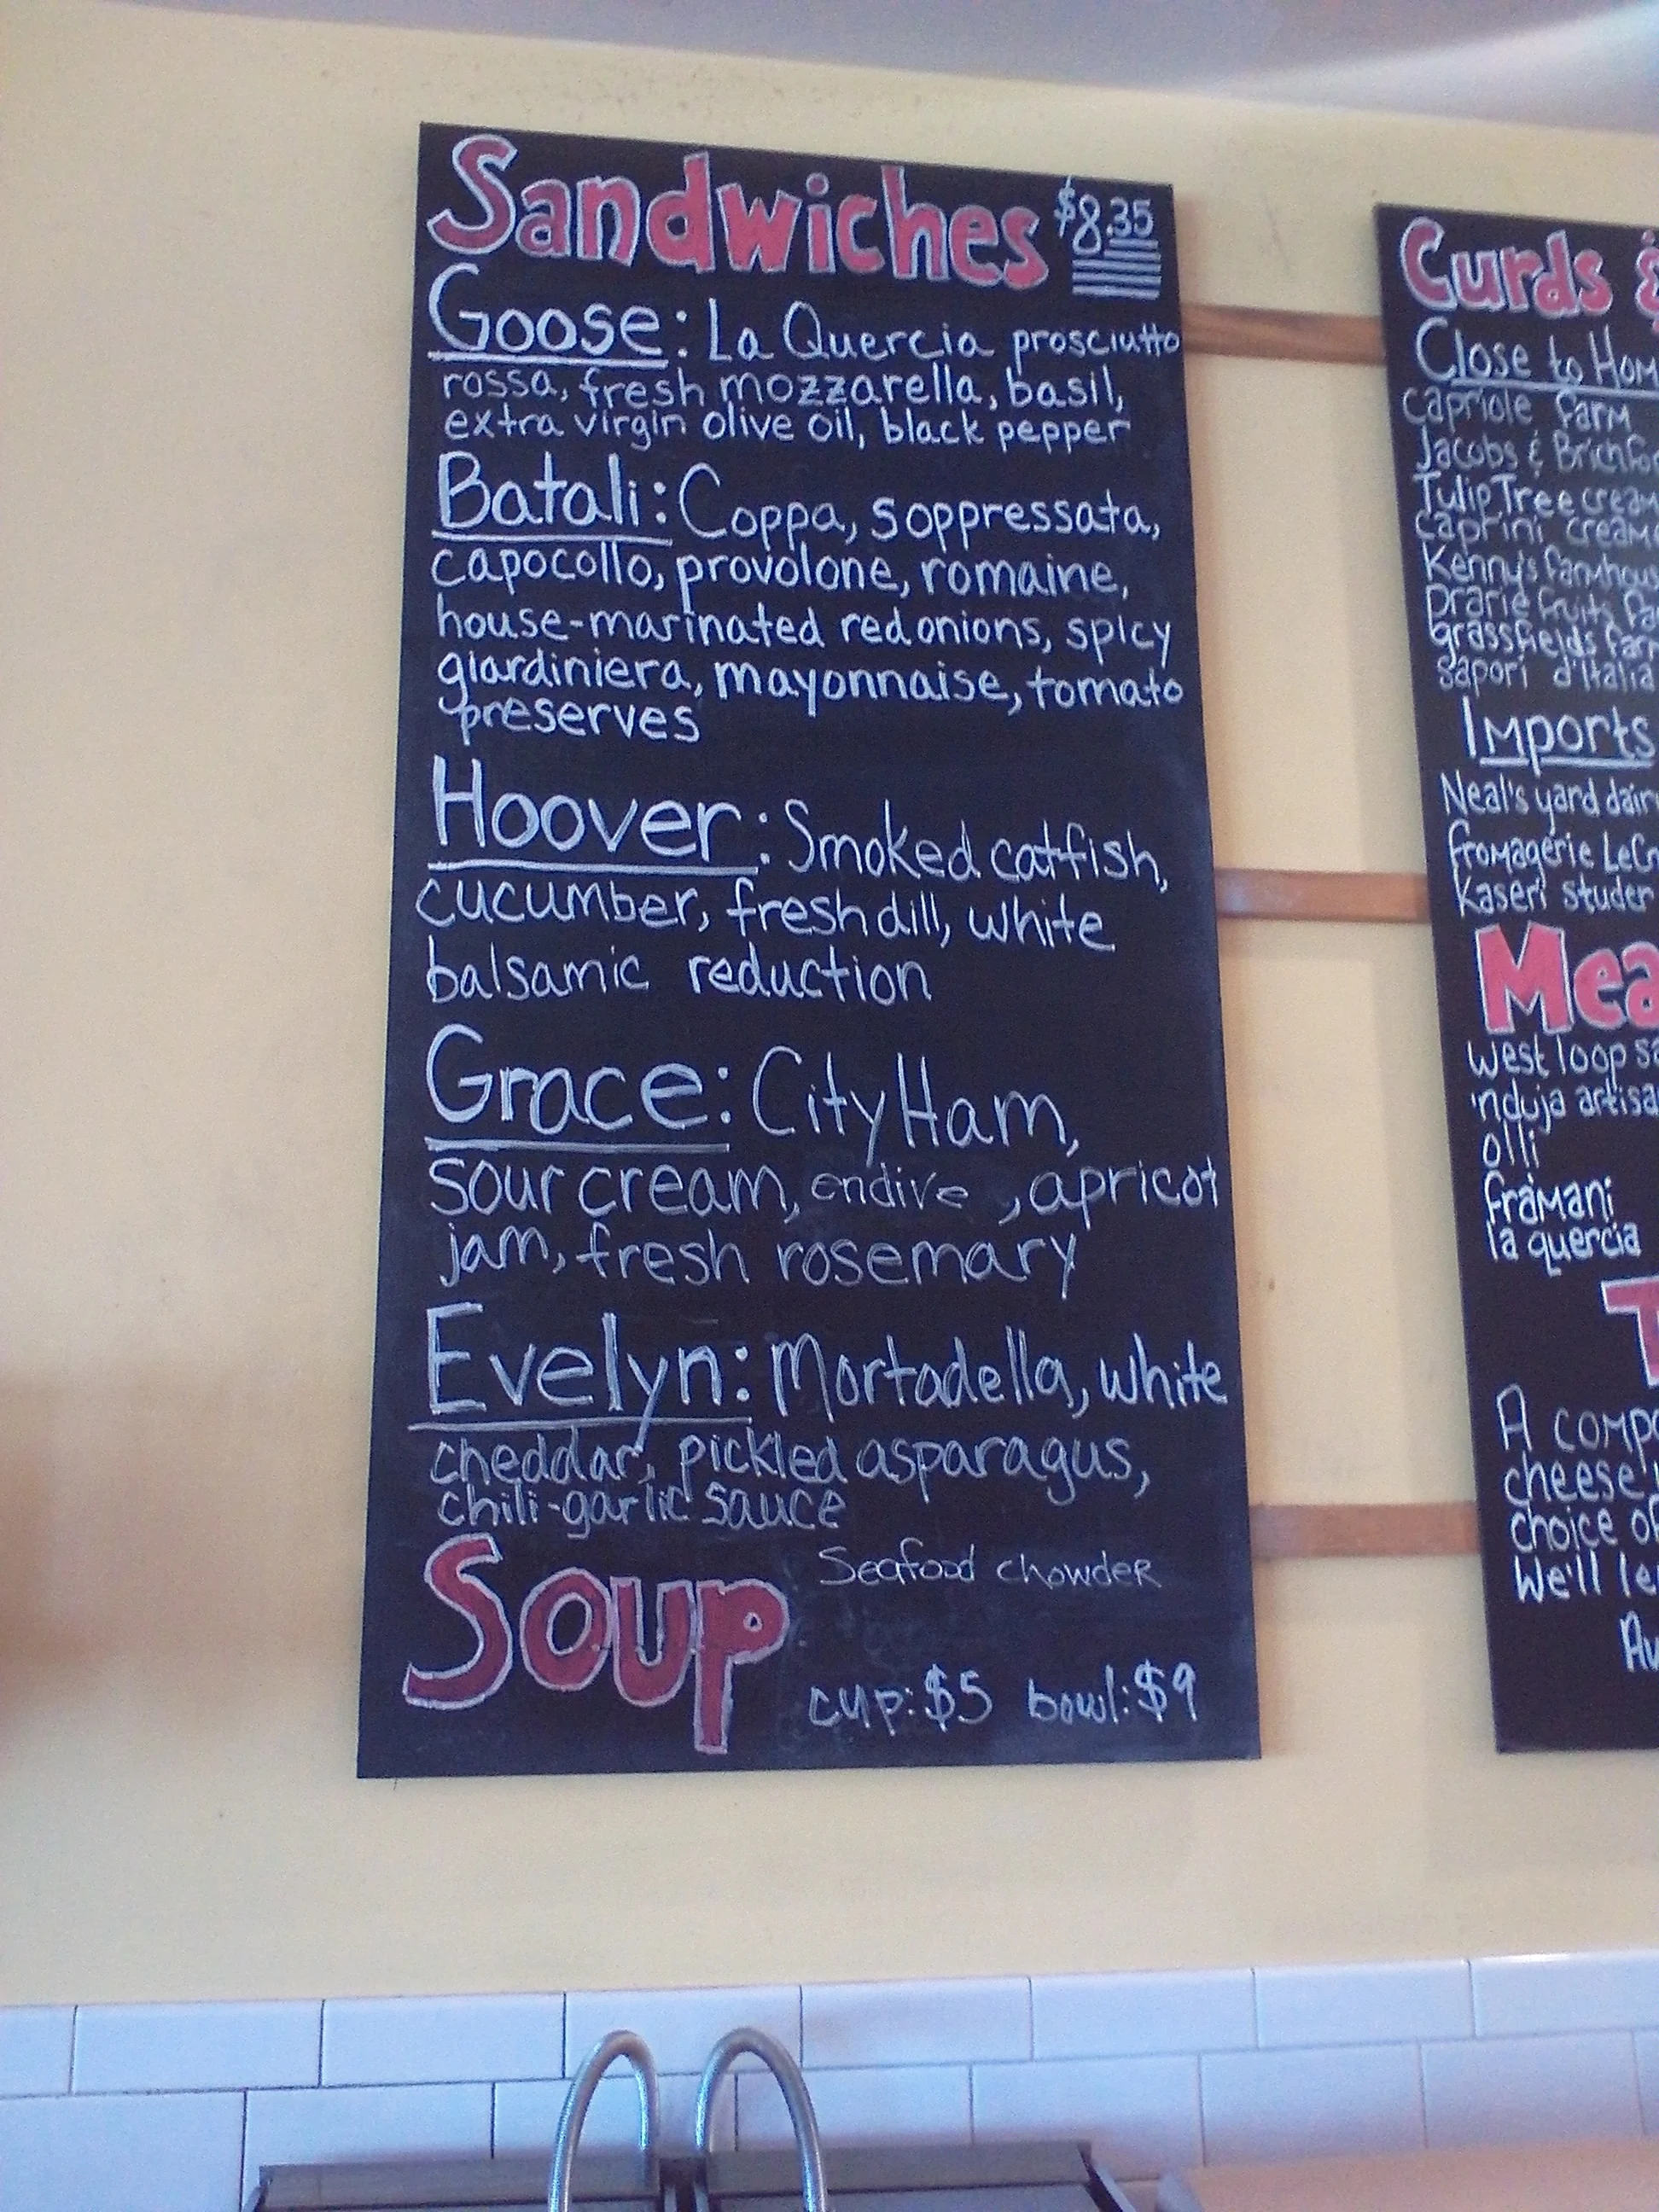 Sandwiches $8.35
Goose: La Quercia prosciutto
rossa, fresh mozzarella, basil,
extra virgin olive oil, black pepper
Batali: Coppa, soppressata,
capocollo, provolone, romaine,
house-marinated red onions, spicy
giardiniera, mayonnaise, tomato
preserves
Hoover: Smoked catfish,
cucumber, fresh dill, white
balsamic reduction
Grace: City Ham,
sour cream, endive, apricot
jam, fresh rosemary
Evelyn: Mortadella, white
cheddar, pickled asparagus,
chili-garlic sauce
Soup Seafood chowder
cup: $5 bowl: $9
Curds &
Close to Hom
capriole farm
Jacobs & Brichfo
Tulip Tree cream
caprini creame
Kenny's farmhous
prarie fruits fa
grassfields farm
sapori d'Italia
Imports
Neal's yard dair
fromagerie LeC
Kaseri studer
Mea
west loop sa
'nduja artisa
olli
framani
la quercia
T
A compo
cheese
choice of
We'll le
Au